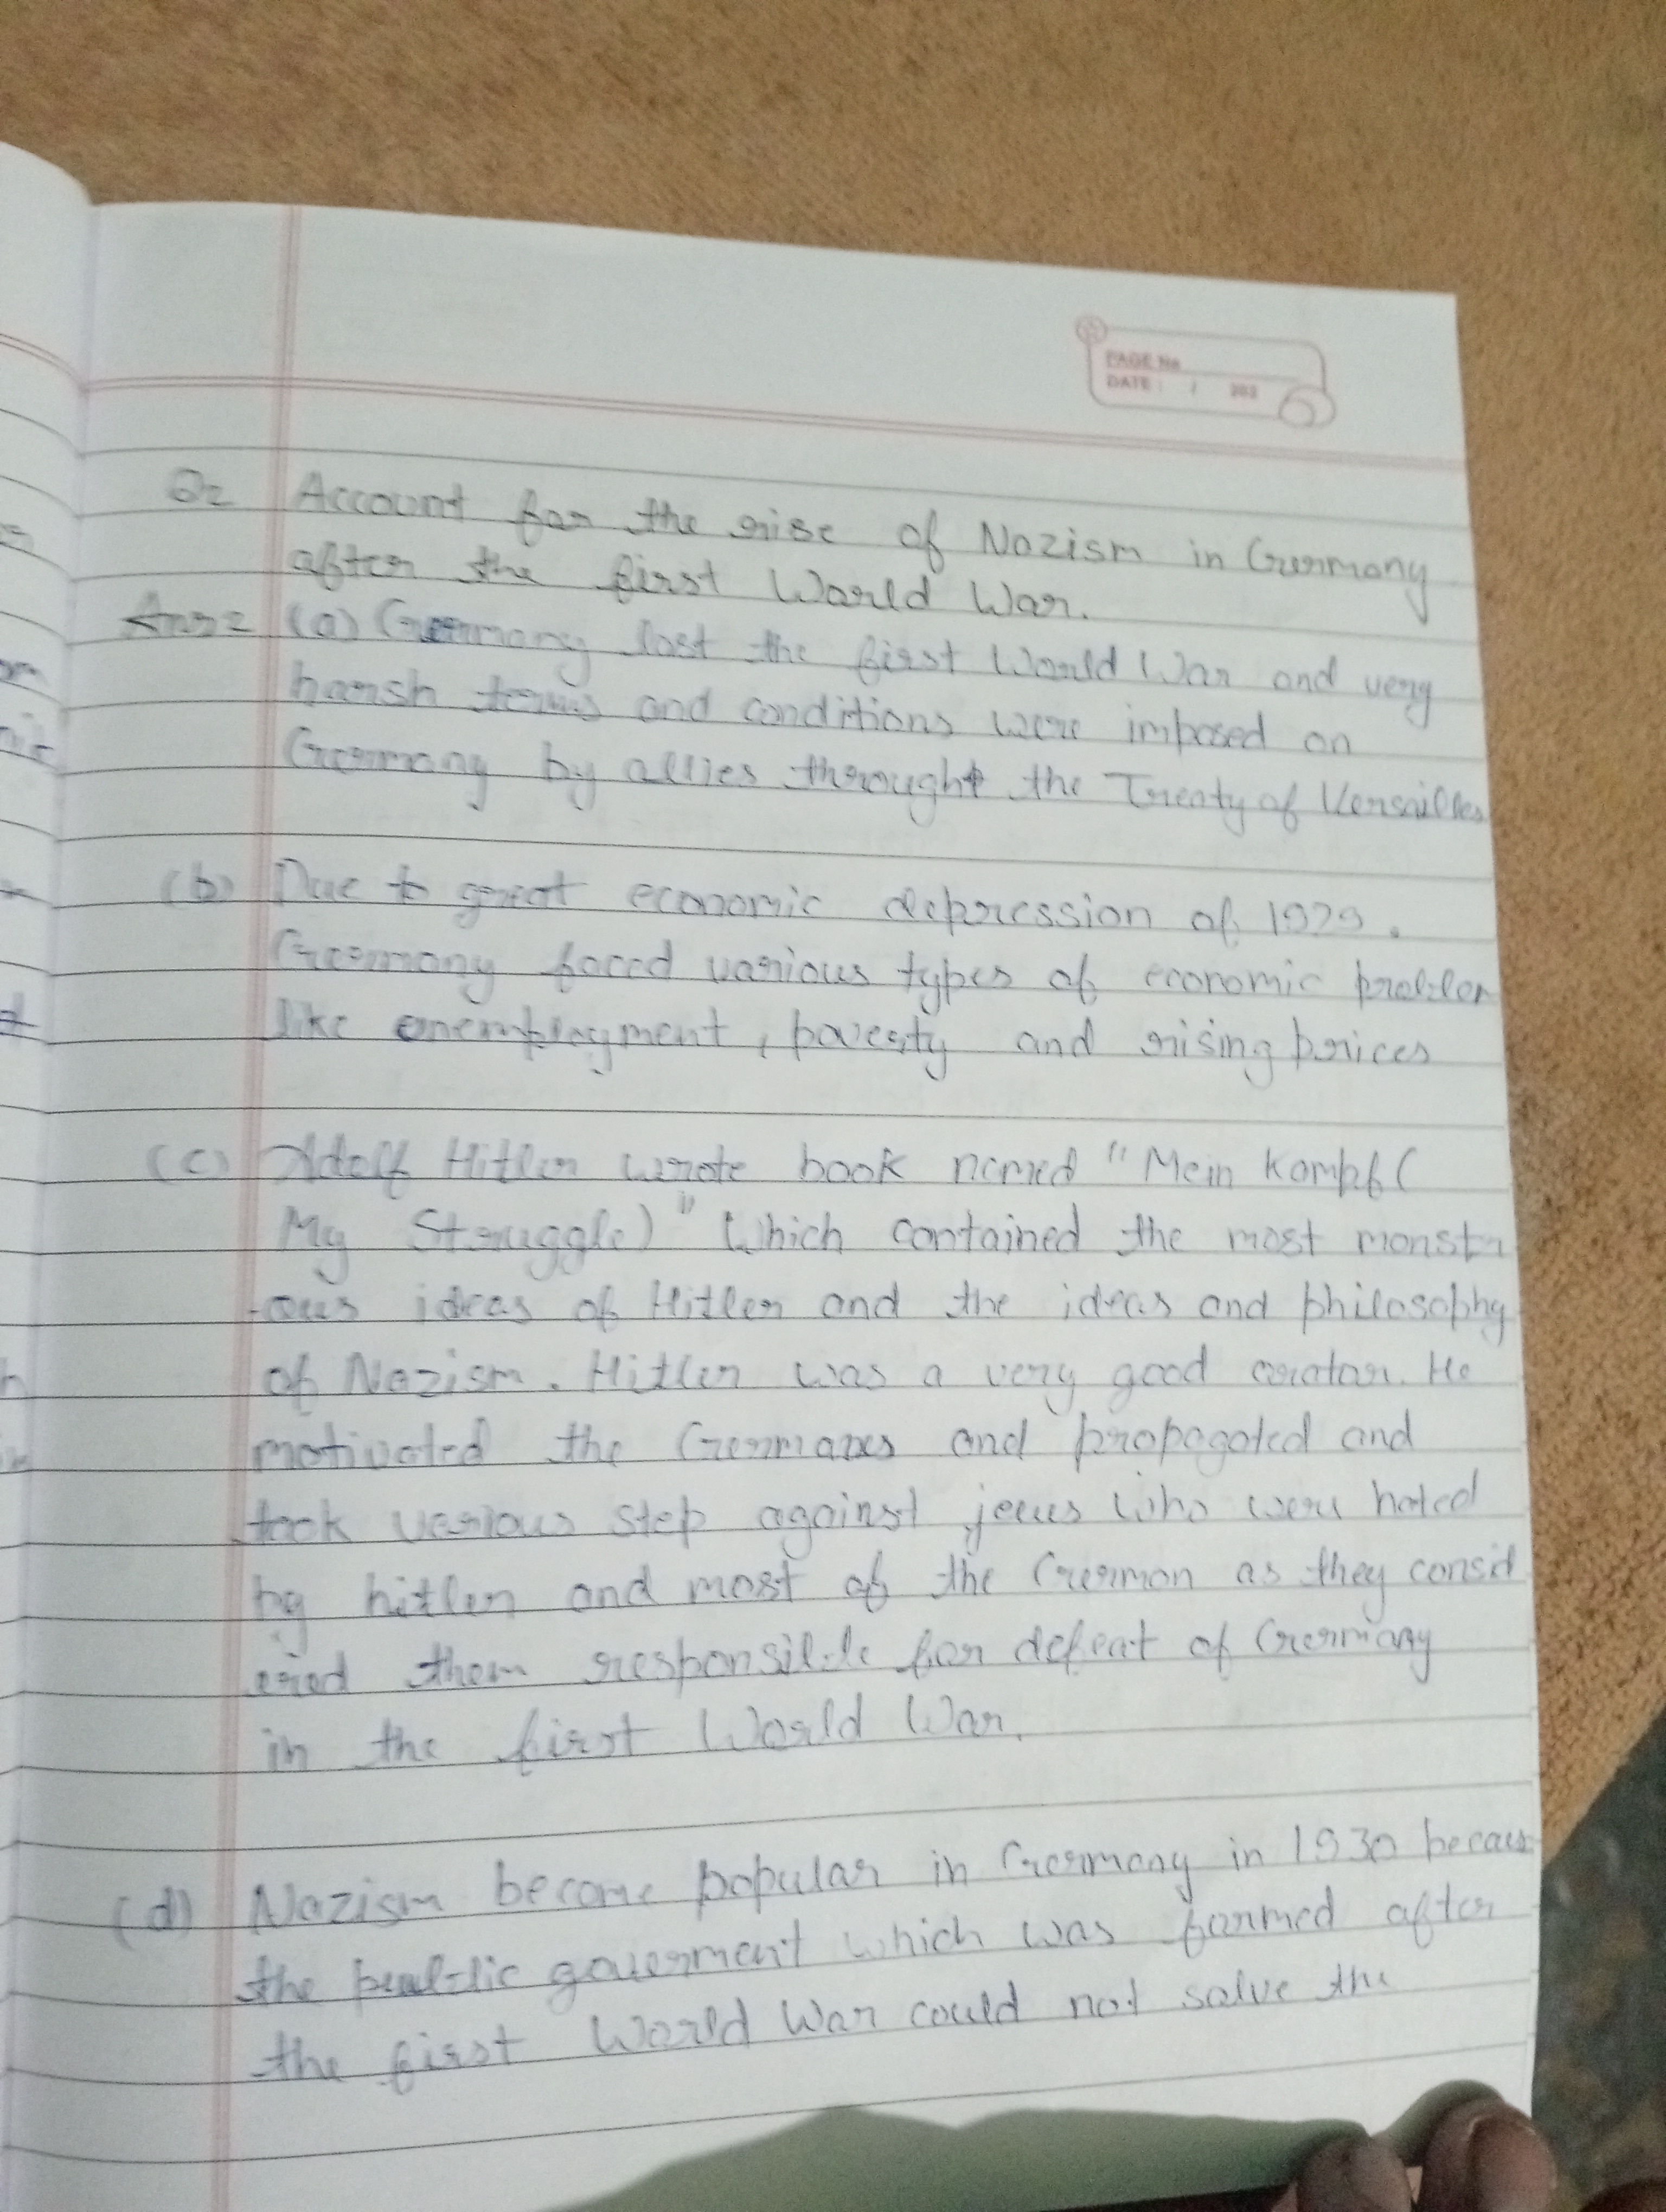 PAGE No
DATE : / 202
Q2 Account for the rise of Nazism in Germany
after the first World War.
Ans2 (a) Germany lost the first World War and very
harsh terms and conditions were imposed on
Germany by allies throught the Treaty of Versailles
(b) Due to great economic depression of 1929.
Germany faced various types of economic problem
like unemployment, poverty and rising prices
(c) Adolf Hitler wrote book named "Mein Kampf (
My Struggle)" Which contained the most monstr
-ous ideas of Hitler and the ideas and philosophy
of Nazism. Hitler was a very good orator. He
motivated the Germans and propagated and
took various step against jews who were hated
by hitler and most of the German as they consid
ered them responsible for defeat of Germany
in the first World War.
(d) Nazism become popular in Germany in 1930 becaus
the public government which was formed after
the first World War could not solve the